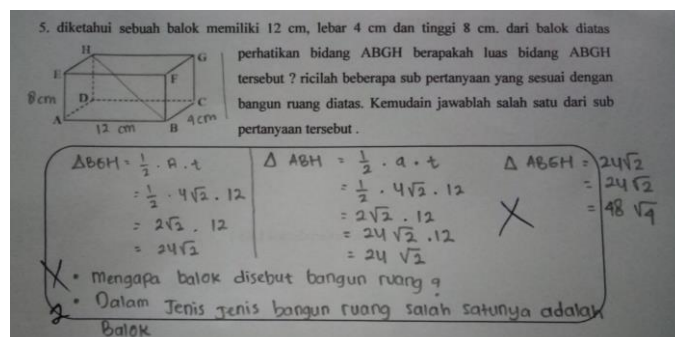 5. diketahui sebuah balok memiliki 12 cm, lebar 4 cm dan tinggi 8 cm. dari balok diatas
perhatikan bidang ABGH berapakah luas bidang ABGH
tersebut ? ricilah beberapa sub pertanyaan yang sesuai dengan
bangun ruang diatas. Kemudain jawablah salah satu dari sub
pertanyaan tersebut .
H
G
E
F
8cm
D
C
A
B
4cm
12 cm
ΔBGH = 1/2 . A . t
= 1/2 . 4√2 . 12
= 2√2 . 12
= 24√2
Δ ABH = 1/2 . a . t
= 1/2 . 4√2 . 12
= 2√2 . 12
= 24√2 .12
= 24 √2
Δ ABGH = 24√2
= 24√2
= 48 √4
X
X • Mengapa balok disebut bangun ruang ?
2 • Dalam Jenis Jenis bangun ruang salah satunya adalah
Balok